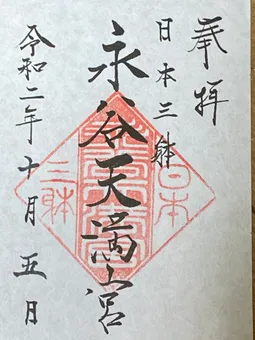 奉拝
日本三躰
永谷天満宮
令和二年十月五日
日本
三躰